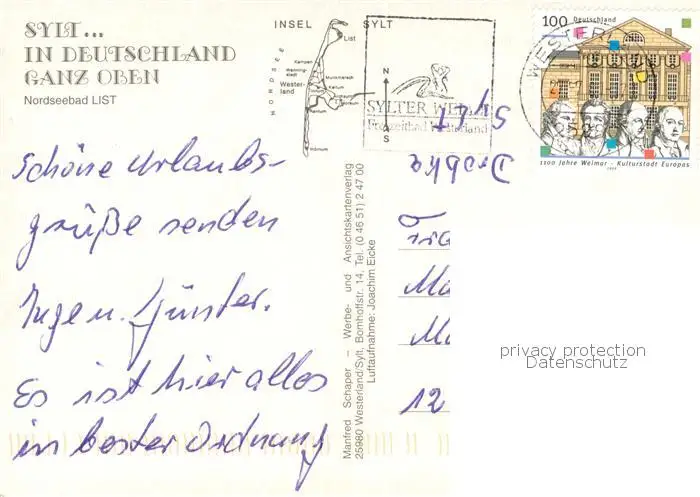 SYLT...
IN DEUTSCHLAND
GANZ OBEN
Nordseebad LIST
INSEL SYLT
NORDSEE
List
Kampen
Wenning-
stedt
Wester-
land
Munkmarsch
Keitum
Rantum
Hörnum
N
S
SYLTER WELLE
Freizeitbad Westerland
WESTERL
100 Deutschland
1100 Jahre Weimar - Kulturstadt Europas
1999
Schöne Urlaubs-
grüße senden
Inge u. Günter.
Es ist hier alles
in bester Ordnung
Manfred Schaper – Werbe- und Ansichtskartenverlag
25980 Westerland/Sylt, Bomhoffstr. 14, Tel. (0 46 51) 2 47 00
Luftaufnahme: Joachim Eicke
Sylt
Ma
12
privacy protection
Datenschutz